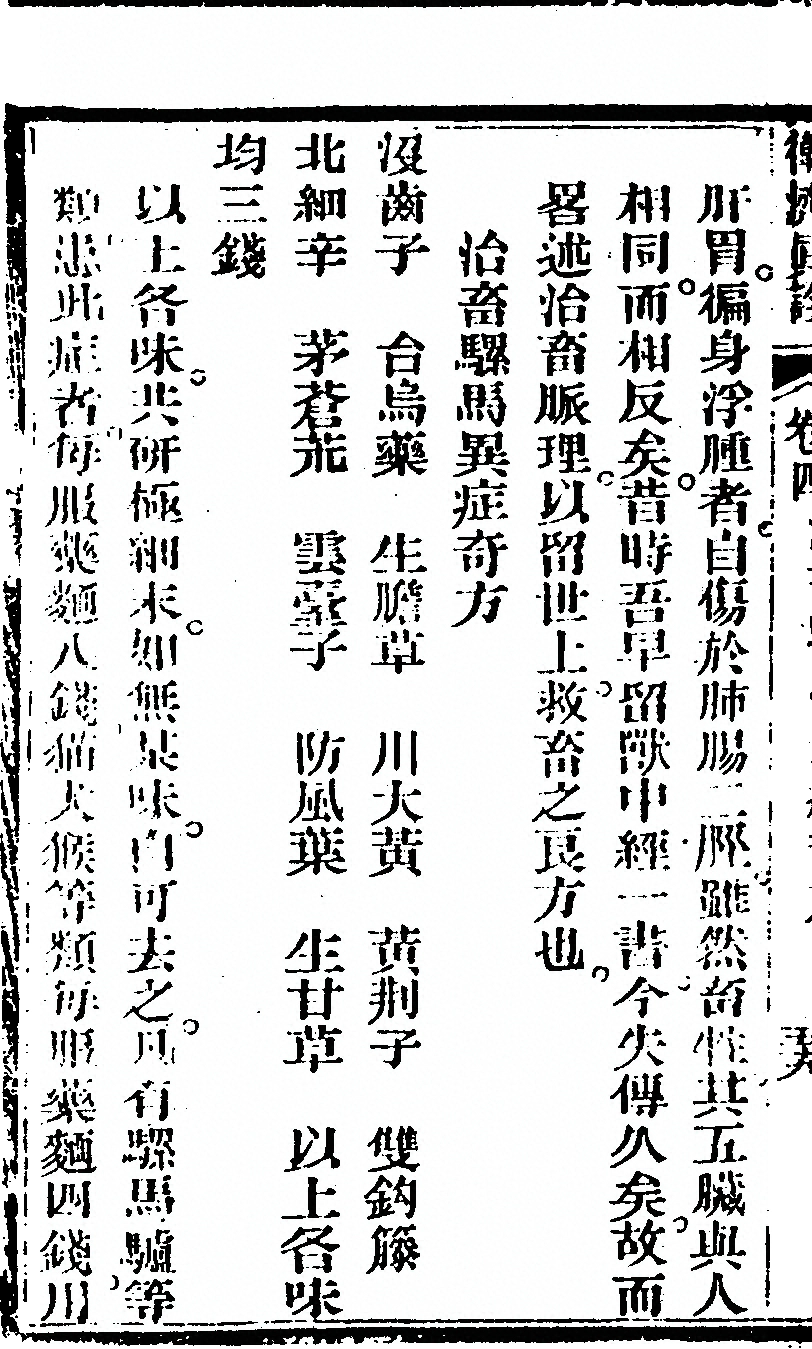 肝胃徧身浮腫者自傷於肺腸二脛雖然畜牲其五臟與人
相同而相反矣昔時吾早留獸中經一書今失傳久矣故而
畧述治畜脈理以留世上救畜之良方也
治畜騾馬異症奇方
沒齒子 台烏藥 生膽草 川大黃 黃荆子 雙鈎籐
北細辛 茅蒼茮 雲靈子 防風葉 生甘草 以上各味
均三錢
以上各味共研極細末如無某味自可去之凡有騾馬驢等
類患此症者每服藥麵八錢猫犬猴等類每服藥麵四錢用